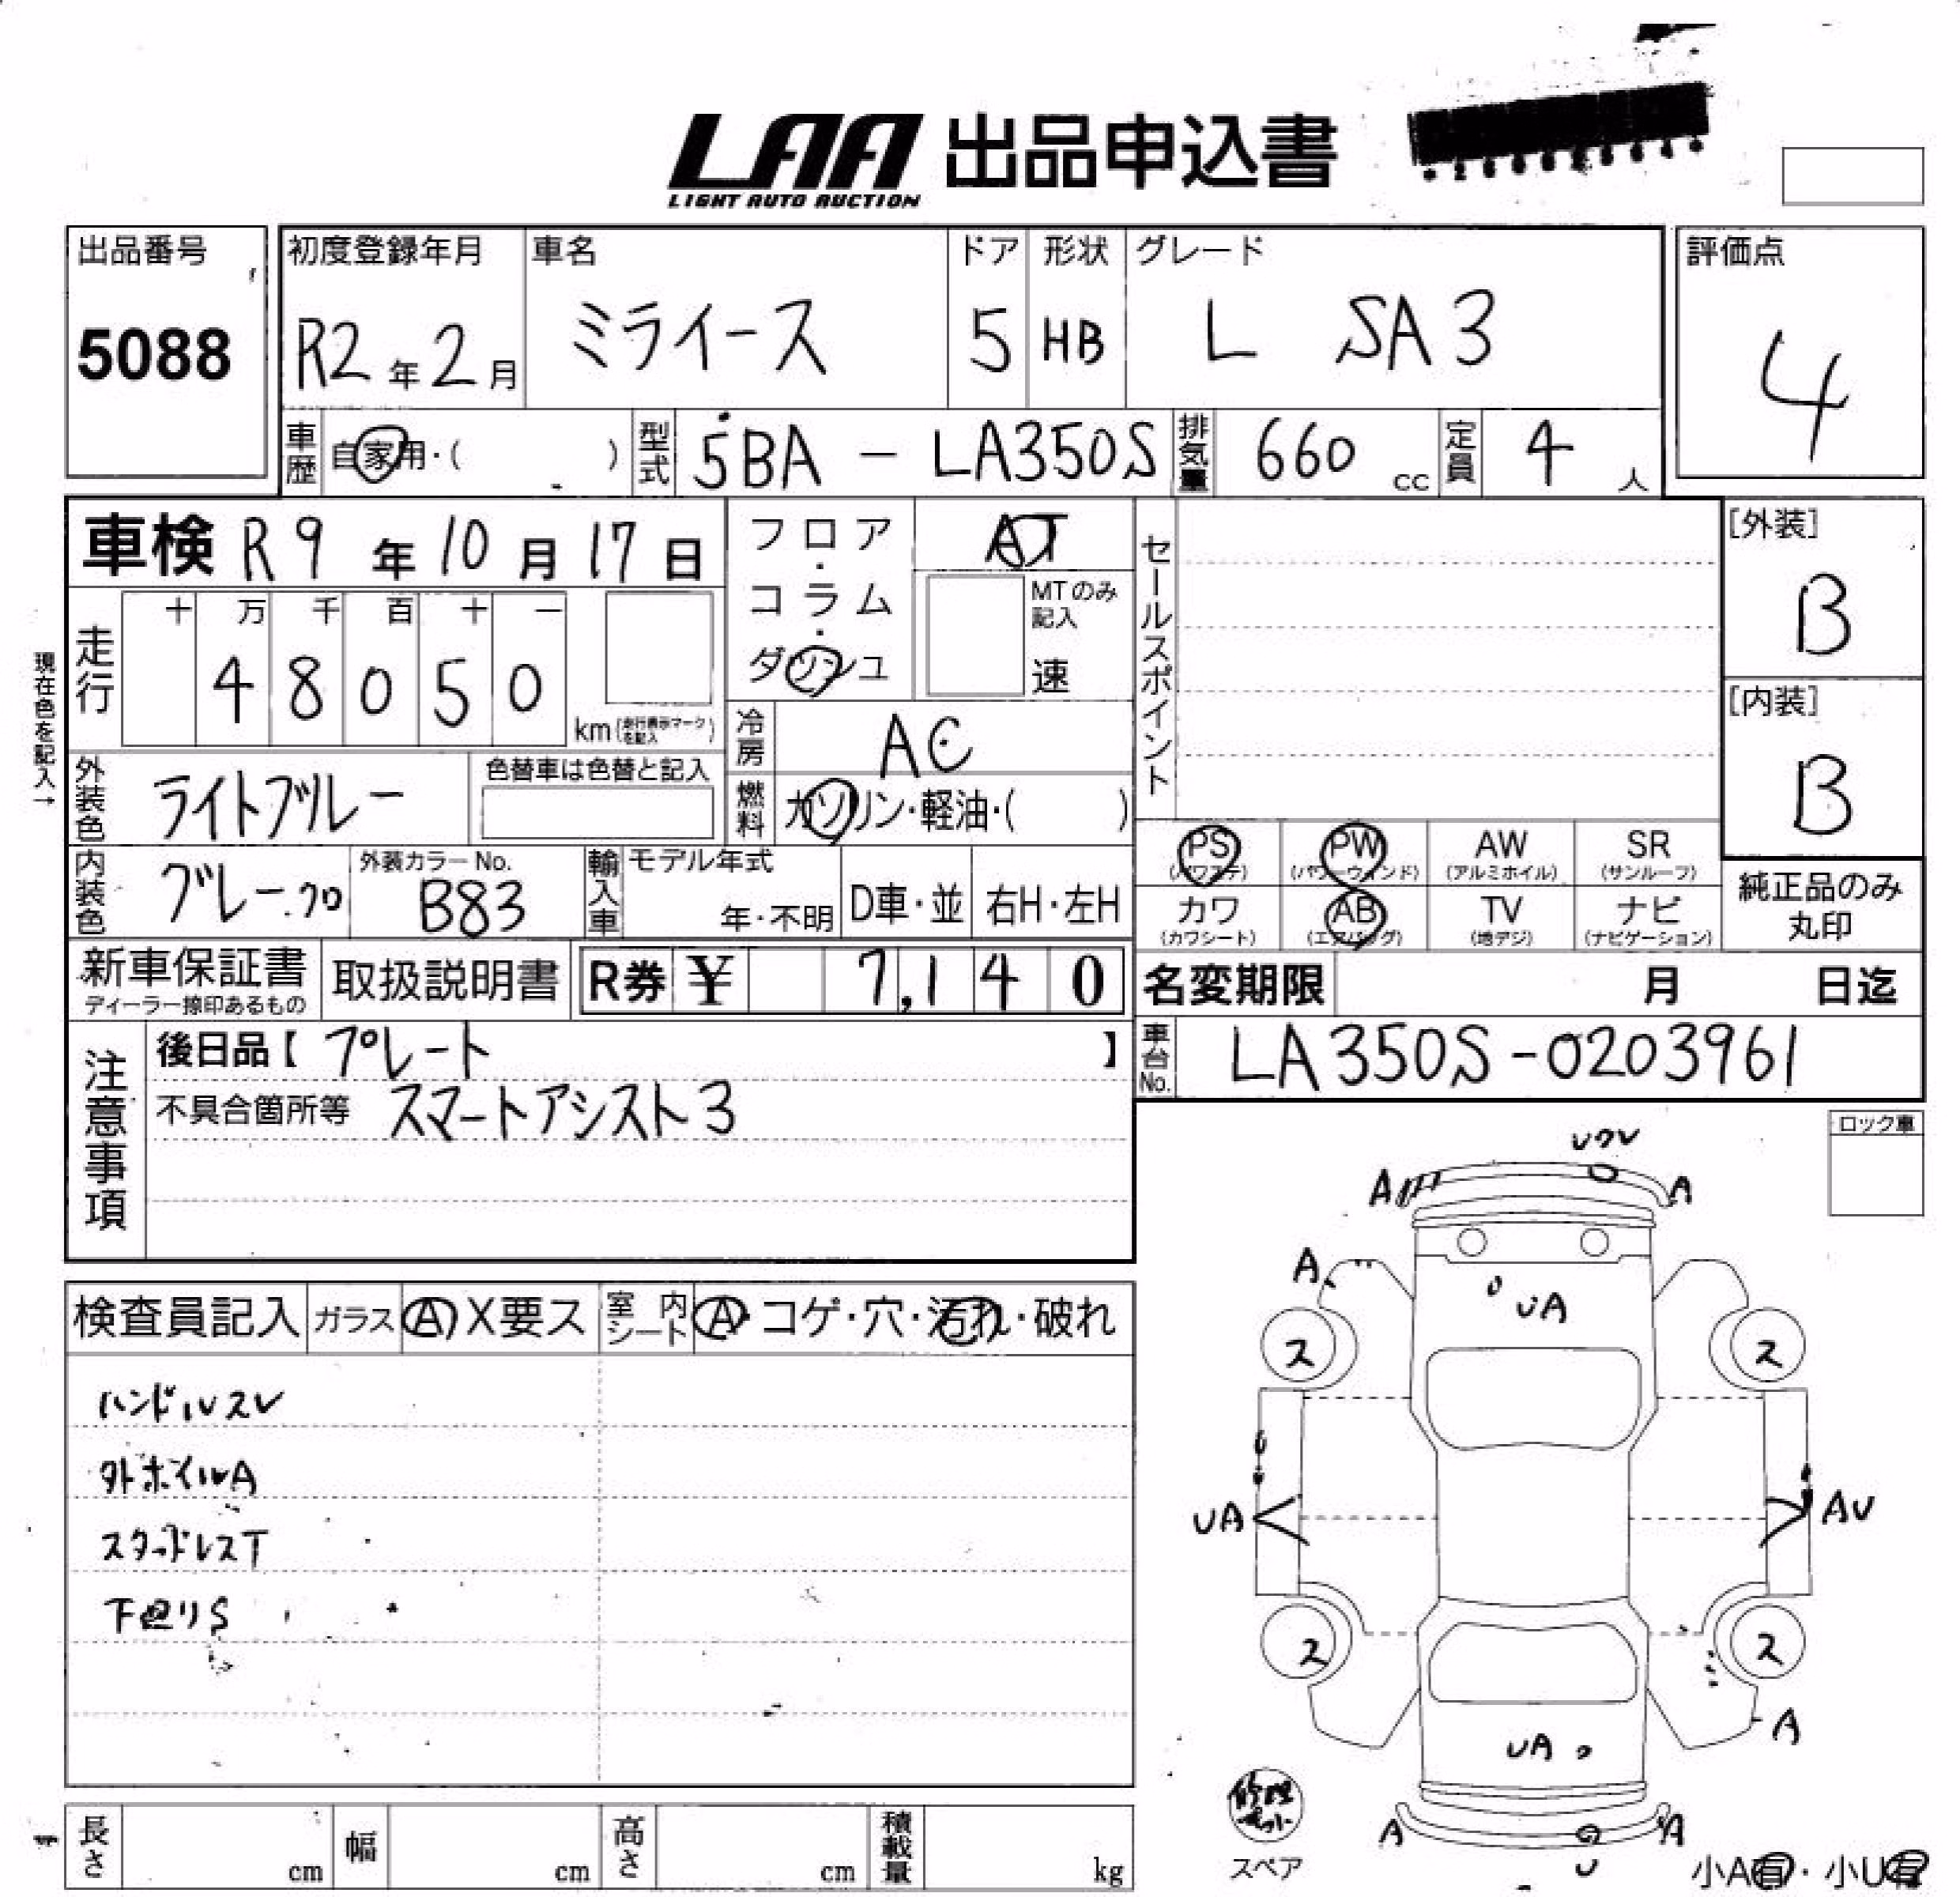 LAA 出品申込書
LIGHT AUTO AUCTION
出品番号 初度登録年月 車名 ドア 形状 グレード 評価点
5088 R2年2月 ミライース 5 HB L SA3 4
車歴 自家用・( ) 型式 5BA - LA350S 排気量 660 cc 定員 4 人
車検 R9年10月17日
フロア・コラム・ダッシュ AT
MTのみ記入
速
セールスポイント
[外装]
B
[内装]
B
現在色を記入→
走行 十 万 千 百 十 一
4 8 0 5 0 km (走行表示マークを記入)
冷房 AC
外装色 ライトブルー 色替車は色替と記入
燃料 ガソリン・軽油・( )
PS (パワステ) PW (パワーウィンド) AW (アルミホイル) SR (サンルーフ)
カワ (カワシート) AB (エアバッグ) TV (地デジ) ナビ (ナビゲーション)
純正品のみ丸印
内装色 グレー.クロ 外装カラーNo. B83 輸入車 モデル年式 年・不明 D車・並 右H・左H
新車保証書 ディーラー捺印あるもの 取扱説明書 R券 ¥ 7,140
名変期限 月 日迄
車台No. LA350S-0203961
注意事項
後日品【 プレート 】
不具合箇所等 スマートアシスト3
ロック車
検査員記入 ガラス A X要ス 室内シート A・コゲ・穴・汚れ・破れ
ハンドルスレ
外ホイルA
スタッドレスT
下廻りS
A A
A
UA
ス ス
UA AU
ス ス
UA
A
A A
U
修理キット
スペア
小A有・小U有
長さ cm 幅 cm 高さ cm 積載量 kg